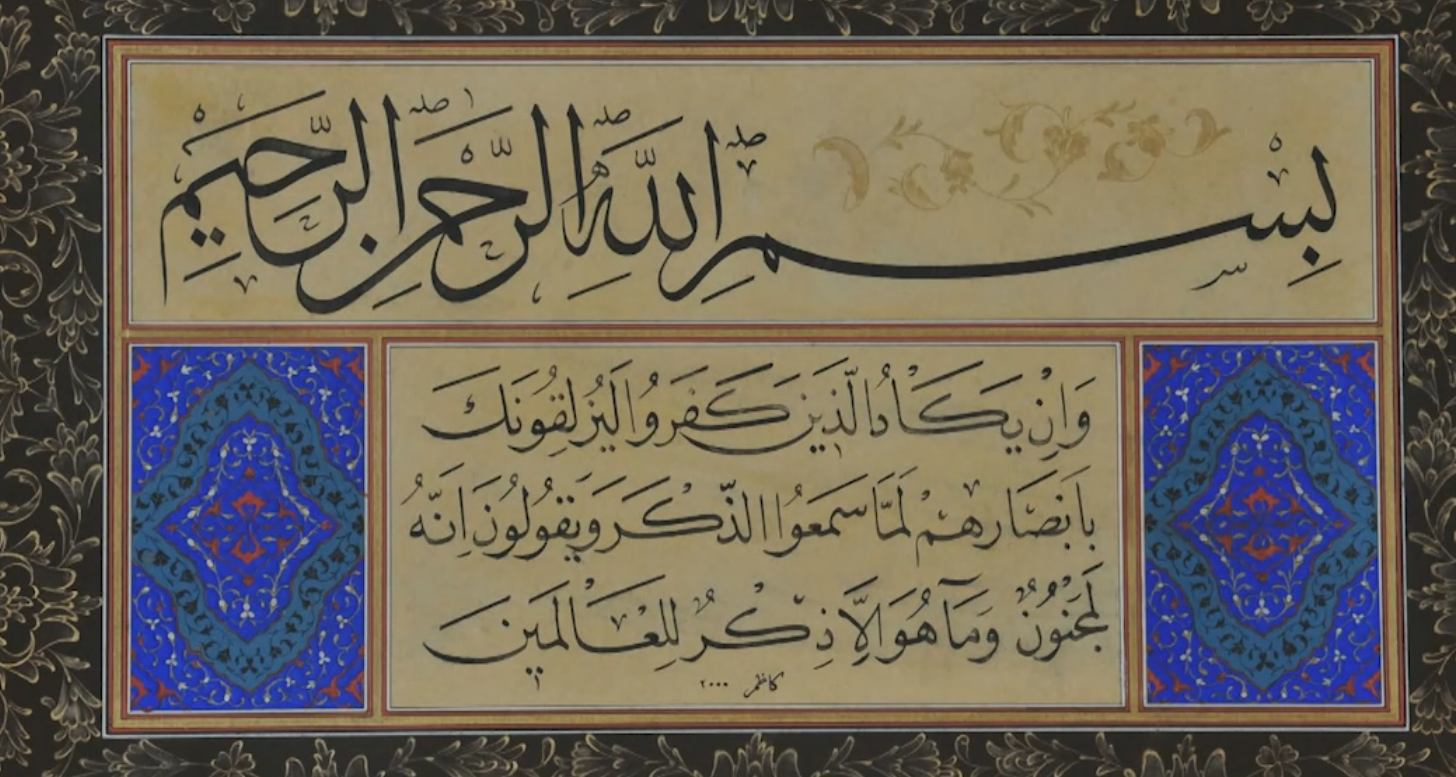 بِسْمِ اللّٰهِ الرَّحْمٰنِ الرَّحِيمِ
وَاِنْ يَكَادُ الَّذِينَ كَفَرُوا لَيُزْلِقُونَكَ
بِاَبْصَارِهِمْ لَمَّا سَمِعُوا الذِّكْرَ وَيَقُولُونَ اِنَّهُ
لَمَجْنُونٌ وَمَا هُوَ اِلَّا ذِكْرٌ لِلْعَالَمِينَ
كاظم ٢٠٠٠